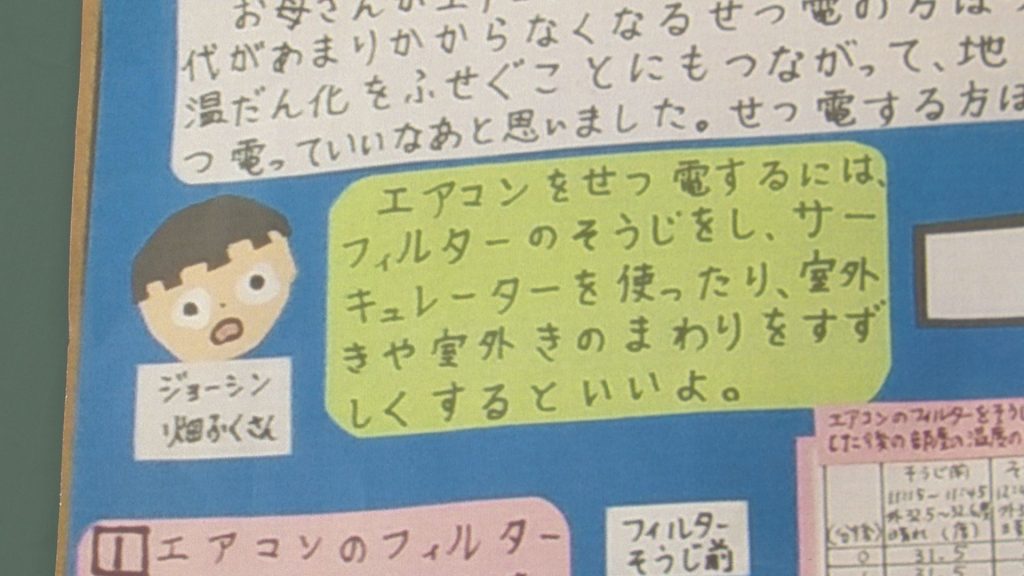 お母さんがエアコ
せつ電の方は
代があまりかからなくなる
温だん化をふせぐことにもつながって、地
つ電っていいなあと思いました。せつ電する方ほ
エアコンをせつ電するには、
フィルターのそうじをし、サー
キュレーターを使ったり、室外
きや室外きのまわりをすず
しくするといいよ。
ジョーシン
畑ふくさん
エアコンのフィルターをそうじ
した後の部屋の温度の
そうじ前
11:15〜11:45
外32.5〜32.6度
晴れ(度)
(分後)
0
31.5
31.5
1 エアコンのフィルター
フィルター
そうじ前